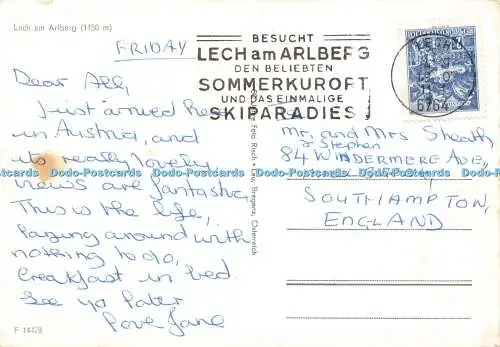 Lech am Arlberg (1450 m)
FRIDAY
BESUCHT
LECH am ARLBERG
DEN BELIEBTEN
SOMMERKURORT
UND DAS EINMALIGE
SKIPARADIES!
LECH
6764
Dear All,
Just arrived here
in Austria, and
its really lovely
views are fantastic,
This is the life,
lazing around with
nothing to do,
breakfast in bed.
See yo later
Love Jane
Mr. and Mrs Sheath
& Stephen
84 WINDERMERE AVE,
SOUTHAMPTON,
ENGLAND
Foto Risch-Lau, Bregenz, Österreich
Dodo-Postcards Dodo-Postcards Dodo-Postcards Dodo-Postcards
F 14428